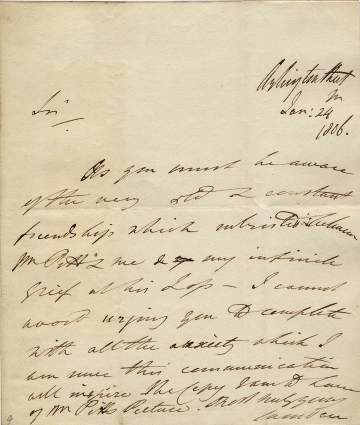 Arlington Street
Jan: 24
1806.
Sir
As you must be aware
of the very old & constant
friendship which subsisted between
Mr Pitt & me & my infinite
grief at his Loss – I cannot
avoid urging you to complete
with all the anxiety which I
am sure this communication
will inspire the Copy I am to have
of Mr Pitts Picture.